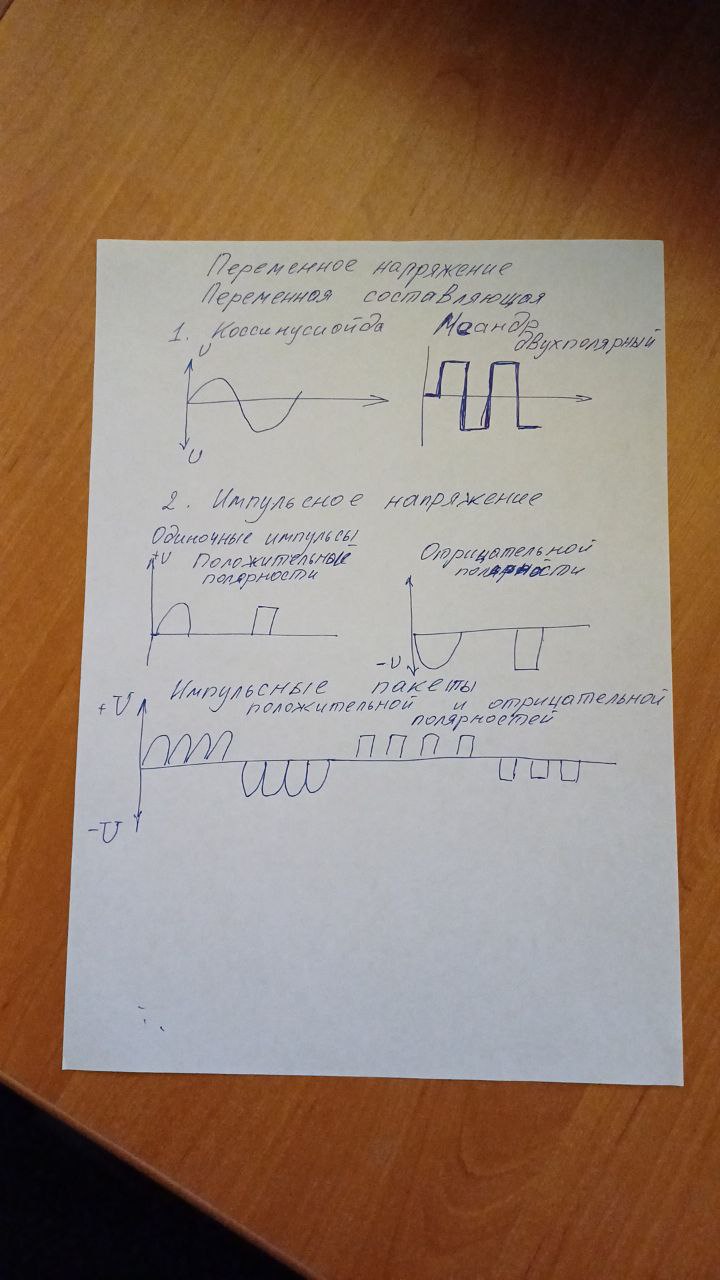 Переменное напряжение
Переменная составляющая
1. Коссинусиойда
Меандр
двухполярный
U
U
2. Импульсное напряжение
Одиночные импульсы
+U Положительные
полярности
Отрицательной
полярности
-U
Импульсные пакеты
положительной и отрицательной
полярностей
+U
-U